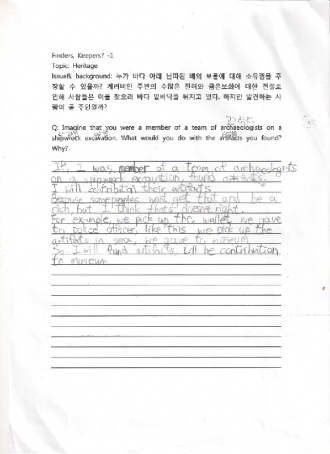 Finders, Keepers? -1
Topic: Heritage
Issue& background: 누가 바다 아래 난파된 배의 보물에 대해 소유권을 주
장할 수 있을까? 캐러비안 주변의 수많은 전화와 금은보화에 대한 전설로
인해 사람들은 이를 찾으러 바다 밑바닥을 뒤지고 있다. 하지만 발견하는 사
람이 곧 주인일까?
Q: Imagine that you were a member of a team of archaeologists on a
shipwreck excavation. What would you do with the artifacts you found?
Why?
If, I was member of a team of archaeologists
on a shipwreck excavation, found artifacts,
I will contribution their artifacts.
Because some peoples want get that and be a
rich, but I think thats doesnt right.
For example, we pick up the wallet, we gave
to police officer, like this we pick up the
artifacts in sea, we gave to museum
So I will found artifacts, will be contribution
to museum